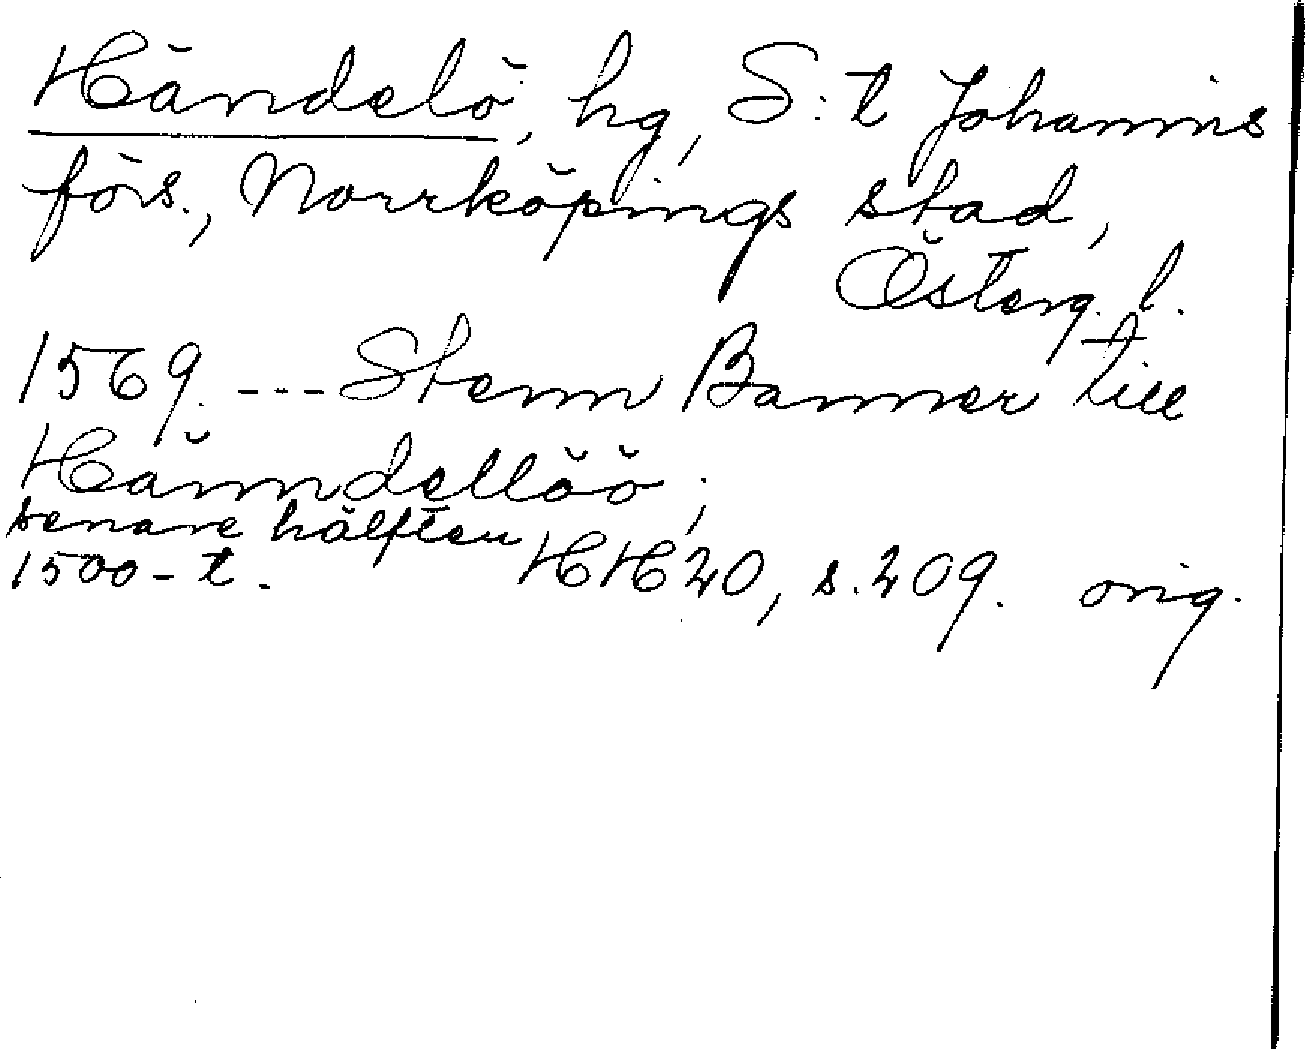 Händelö, hg, S:t Johannis
förs., Norrköpings stad,
Österg. l.
1569. --- Stenn Banner till
Hänndellöö;
senare hälften
1500-t. HH 20, s. 209. orig.